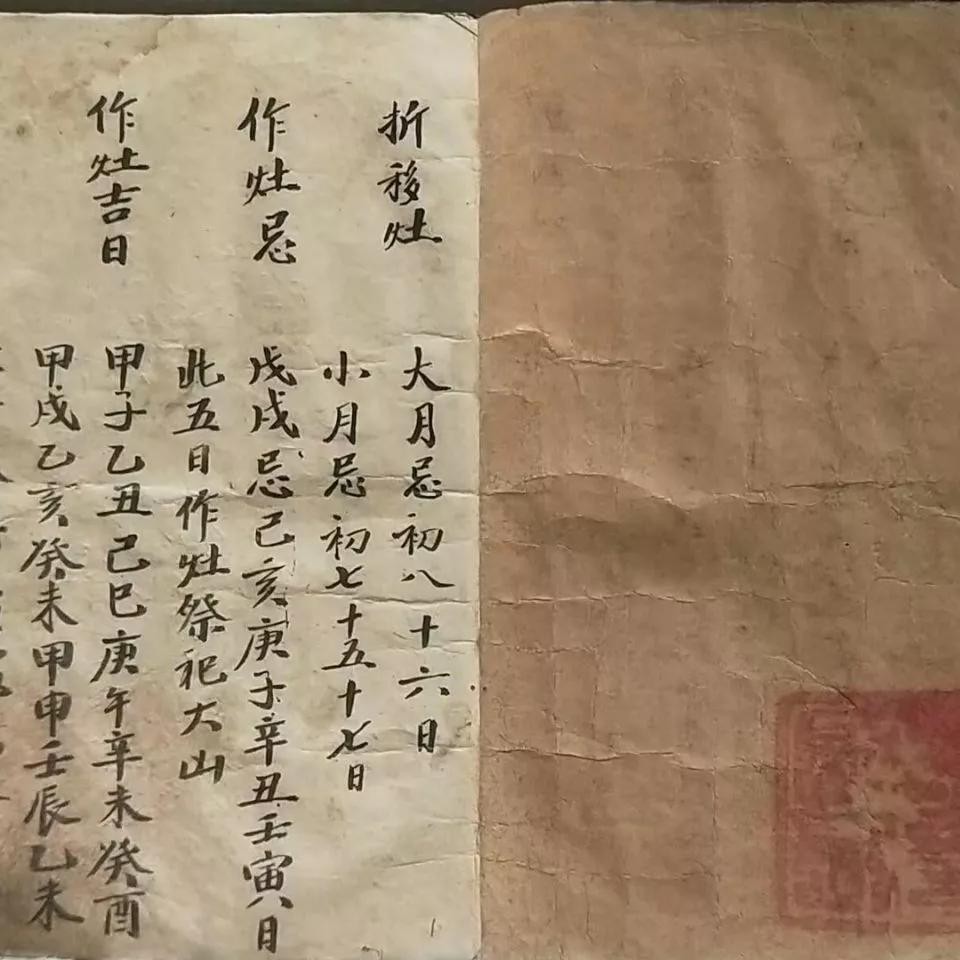 折移灶
大月忌初八十六日
小月忌初七十五十七日
作灶忌
戊戌忌己亥庚子辛丑壬寅日
此五日作灶祭祀大山
作灶吉日
甲子乙丑己巳庚午辛未癸酉
甲戌乙亥癸未甲申壬辰乙未